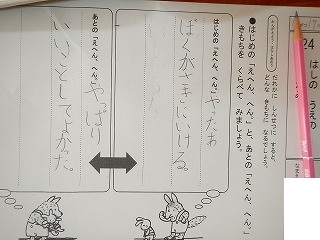 24
はしの うえの
だれかに しんせつに すると、
どんな きもちに なるでしょう。
●はじめの「えへん、へん。」と、あとの「えへん、へん。」
きもちを くらべて みましょう。
はじめの「えへん、へん。」
やったあ
ぼくがさきにいける。
あとの「えへん、へん。」
やっぱり
いいことしてよかった。